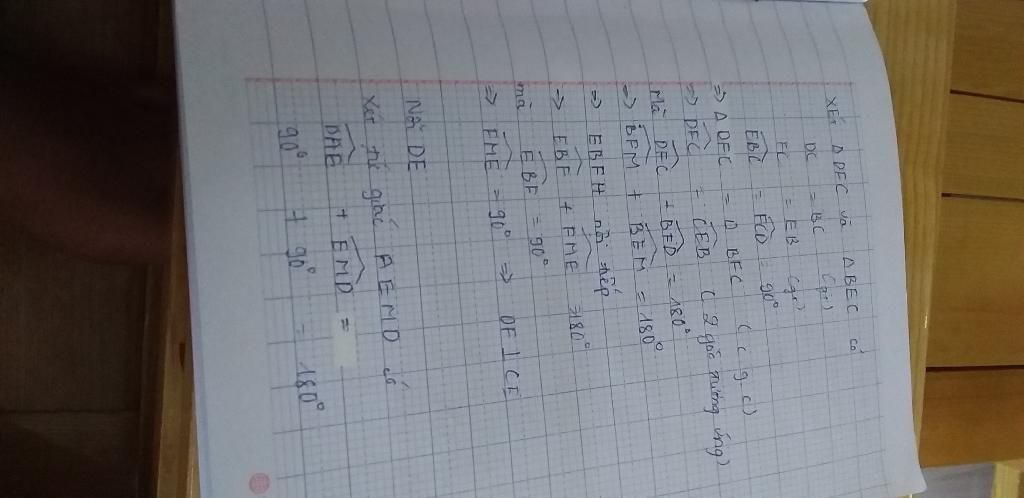 Xét Δ DFC và Δ BEC có
DC = BC (gt)
FC = EB (gt)
EBC = FCD = 90°
=> Δ DFC = Δ BEC (c g c)
=> DFC = CEB (2 góc tương ứng)
Mà DFC + BFD = 180°
=> BFM + BEM = 180°
=> EBFM nội tiếp
=> EBF + FME = 180°
mà EBF = 90°
=> FME = 90° => DF ⊥ CE
Nối DE
Xét tứ giác AEMD có
DAE + EMD =
90° + 90° = 180°